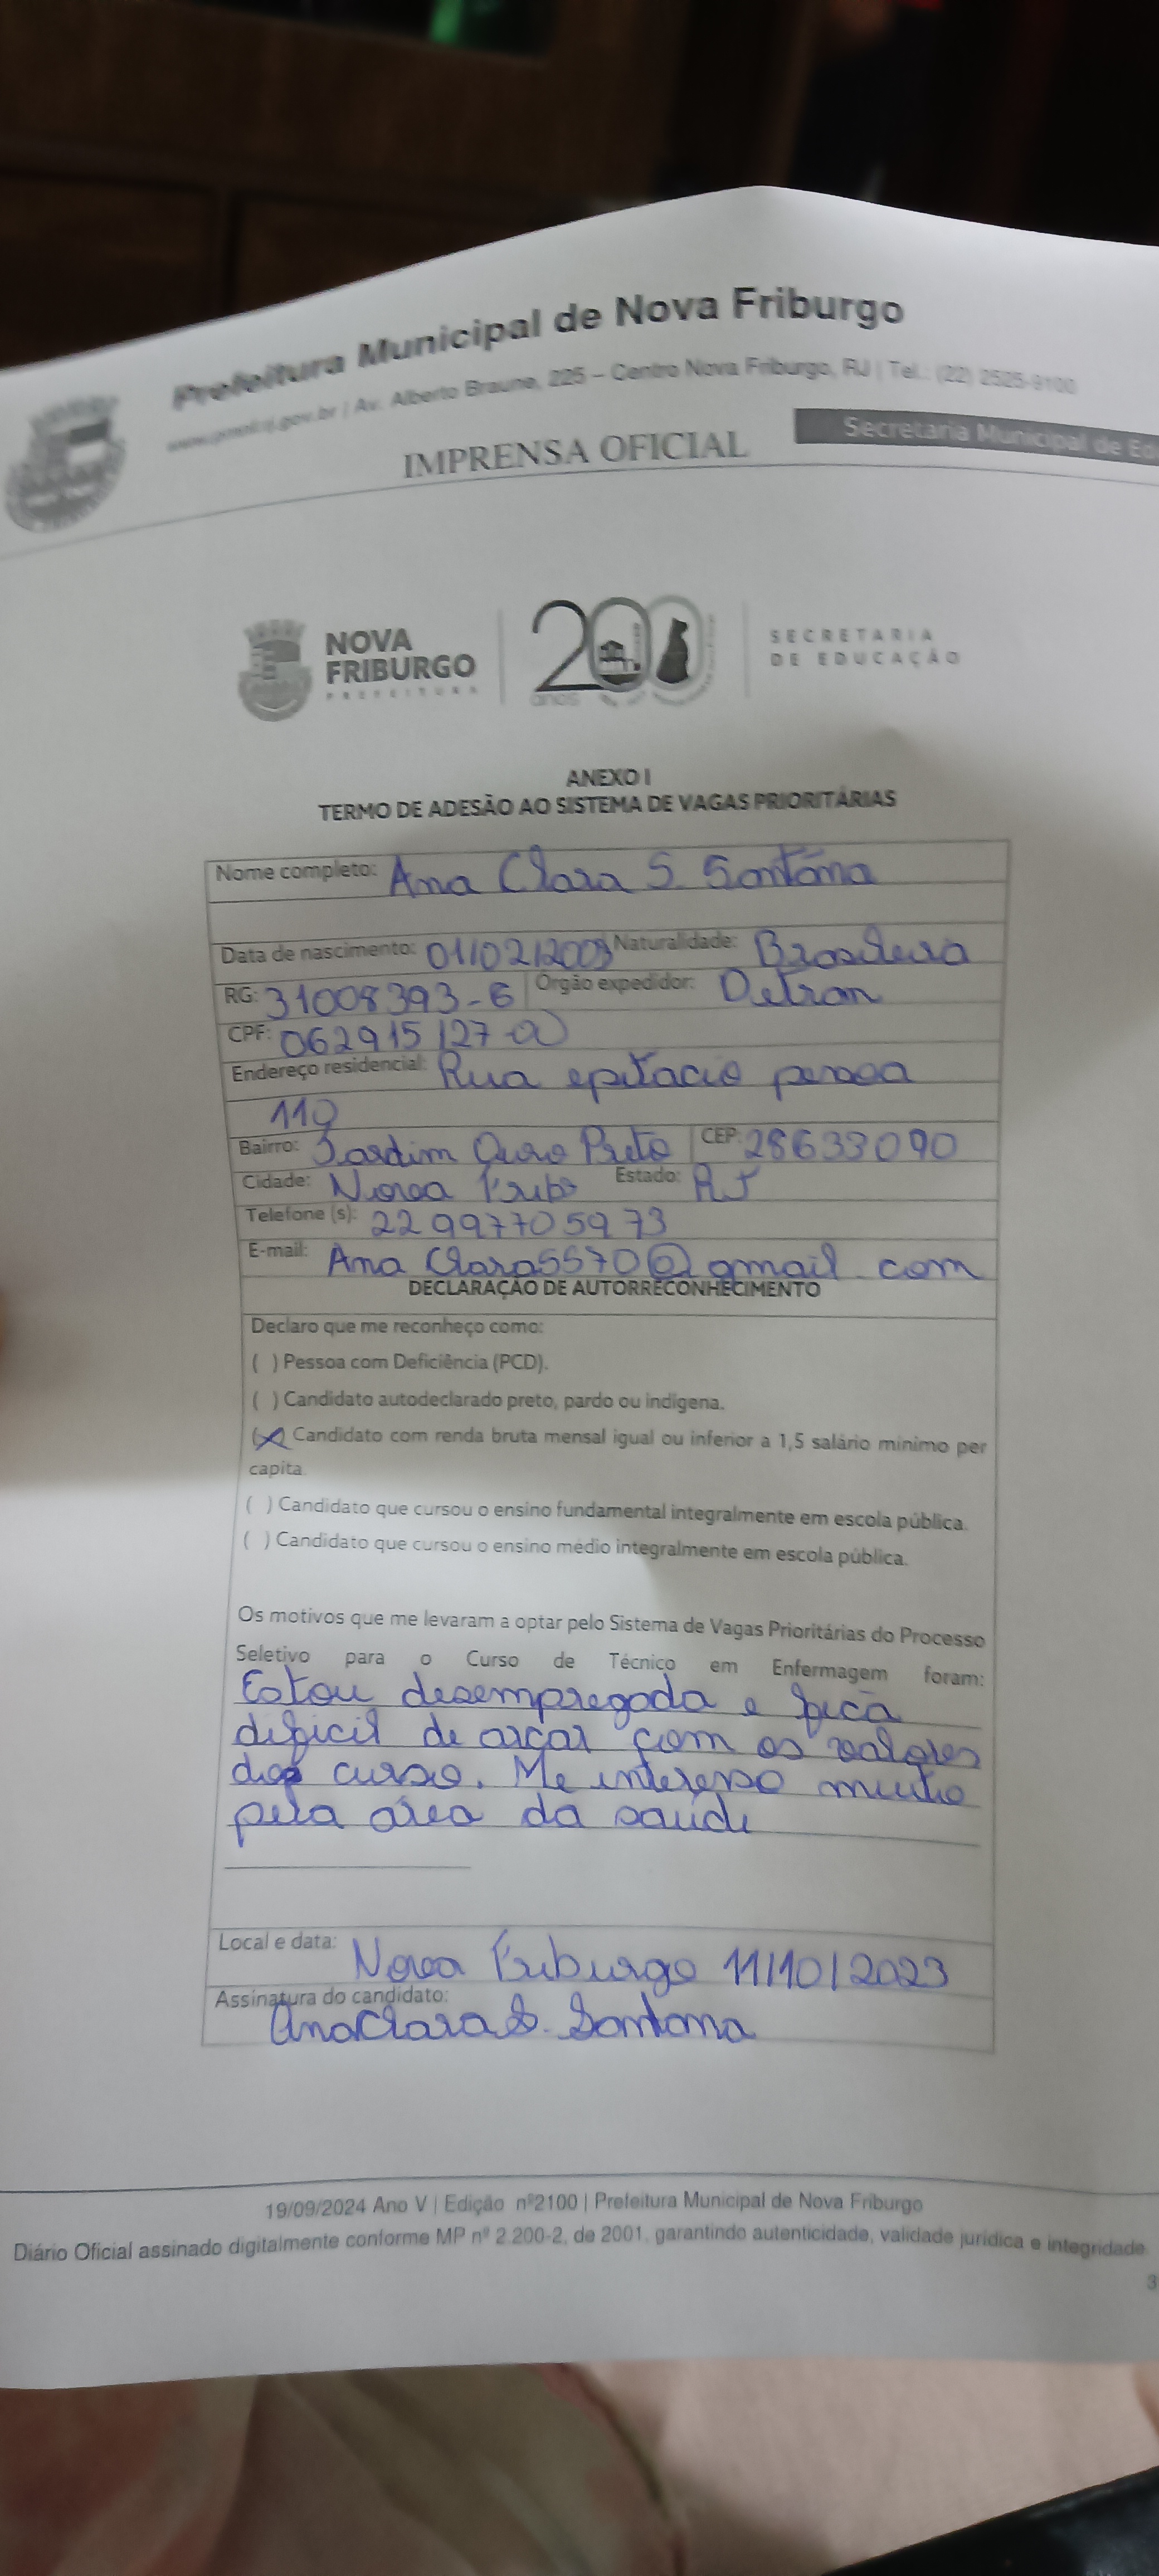 Prefeitura Municipal de Nova Friburgo
| Av. Alberto Braune, 225 – Centro Nova Friburgo, RJ | Tel.: (22) 2525-9100
IMPRENSA OFICIAL
Secretaria Municipal de Ed
NOVA
FRIBURGO
PREFEITURA
200
anos
SECRETARIA
DE EDUCAÇÃO
ANEXO I
TERMO DE ADESÃO AO SISTEMA DE VAGAS PRIORITÁRIAS
Nome completo: Ana Clara S. Santana
Data de nascimento: 01/02/2003 Naturalidade: Brasileira
RG: 31008393-6 Orgão expedidor: Detran
CPF: 062915127
Endereço residencial: Rua epitacio pessoa
110
Bairro: Jardim Ouro Preto CEP: 28633090
Cidade: Nova Fribo Estado: RJ
Telefone (s): 22 997705973
E-mail: Ana Clara5570@gmail.com
DECLARAÇÃO DE AUTORRECONHECIMENTO
Declaro que me reconheço como:
( ) Pessoa com Deficiência (PCD).
( ) Candidato autodeclarado preto, pardo ou indígena.
(X) Candidato com renda bruta mensal igual ou inferior a 1,5 salário mínimo per
capita.
( ) Candidato que cursou o ensino fundamental integralmente em escola pública.
( ) Candidato que cursou o ensino médio integralmente em escola pública.
Os motivos que me levaram a optar pelo Sistema de Vagas Prioritárias do Processo
Seletivo para o Curso de Técnico em Enfermagem foram:
Estou desempregada e fica
dificil de arcar com os valores
dos curso. Me interesso muito
pela área da saúde
Local e data: Nova Friburgo 11/10/2023
Assinatura do candidato:
Ana Clara S. Santana
19/09/2024 Ano V | Edição nº2100 | Prefeitura Municipal de Nova Friburgo
Diário Oficial assinado digitalmente conforme MP nº 2.200-2, de 2001, garantindo autenticidade, validade jurídica e integridade.
3